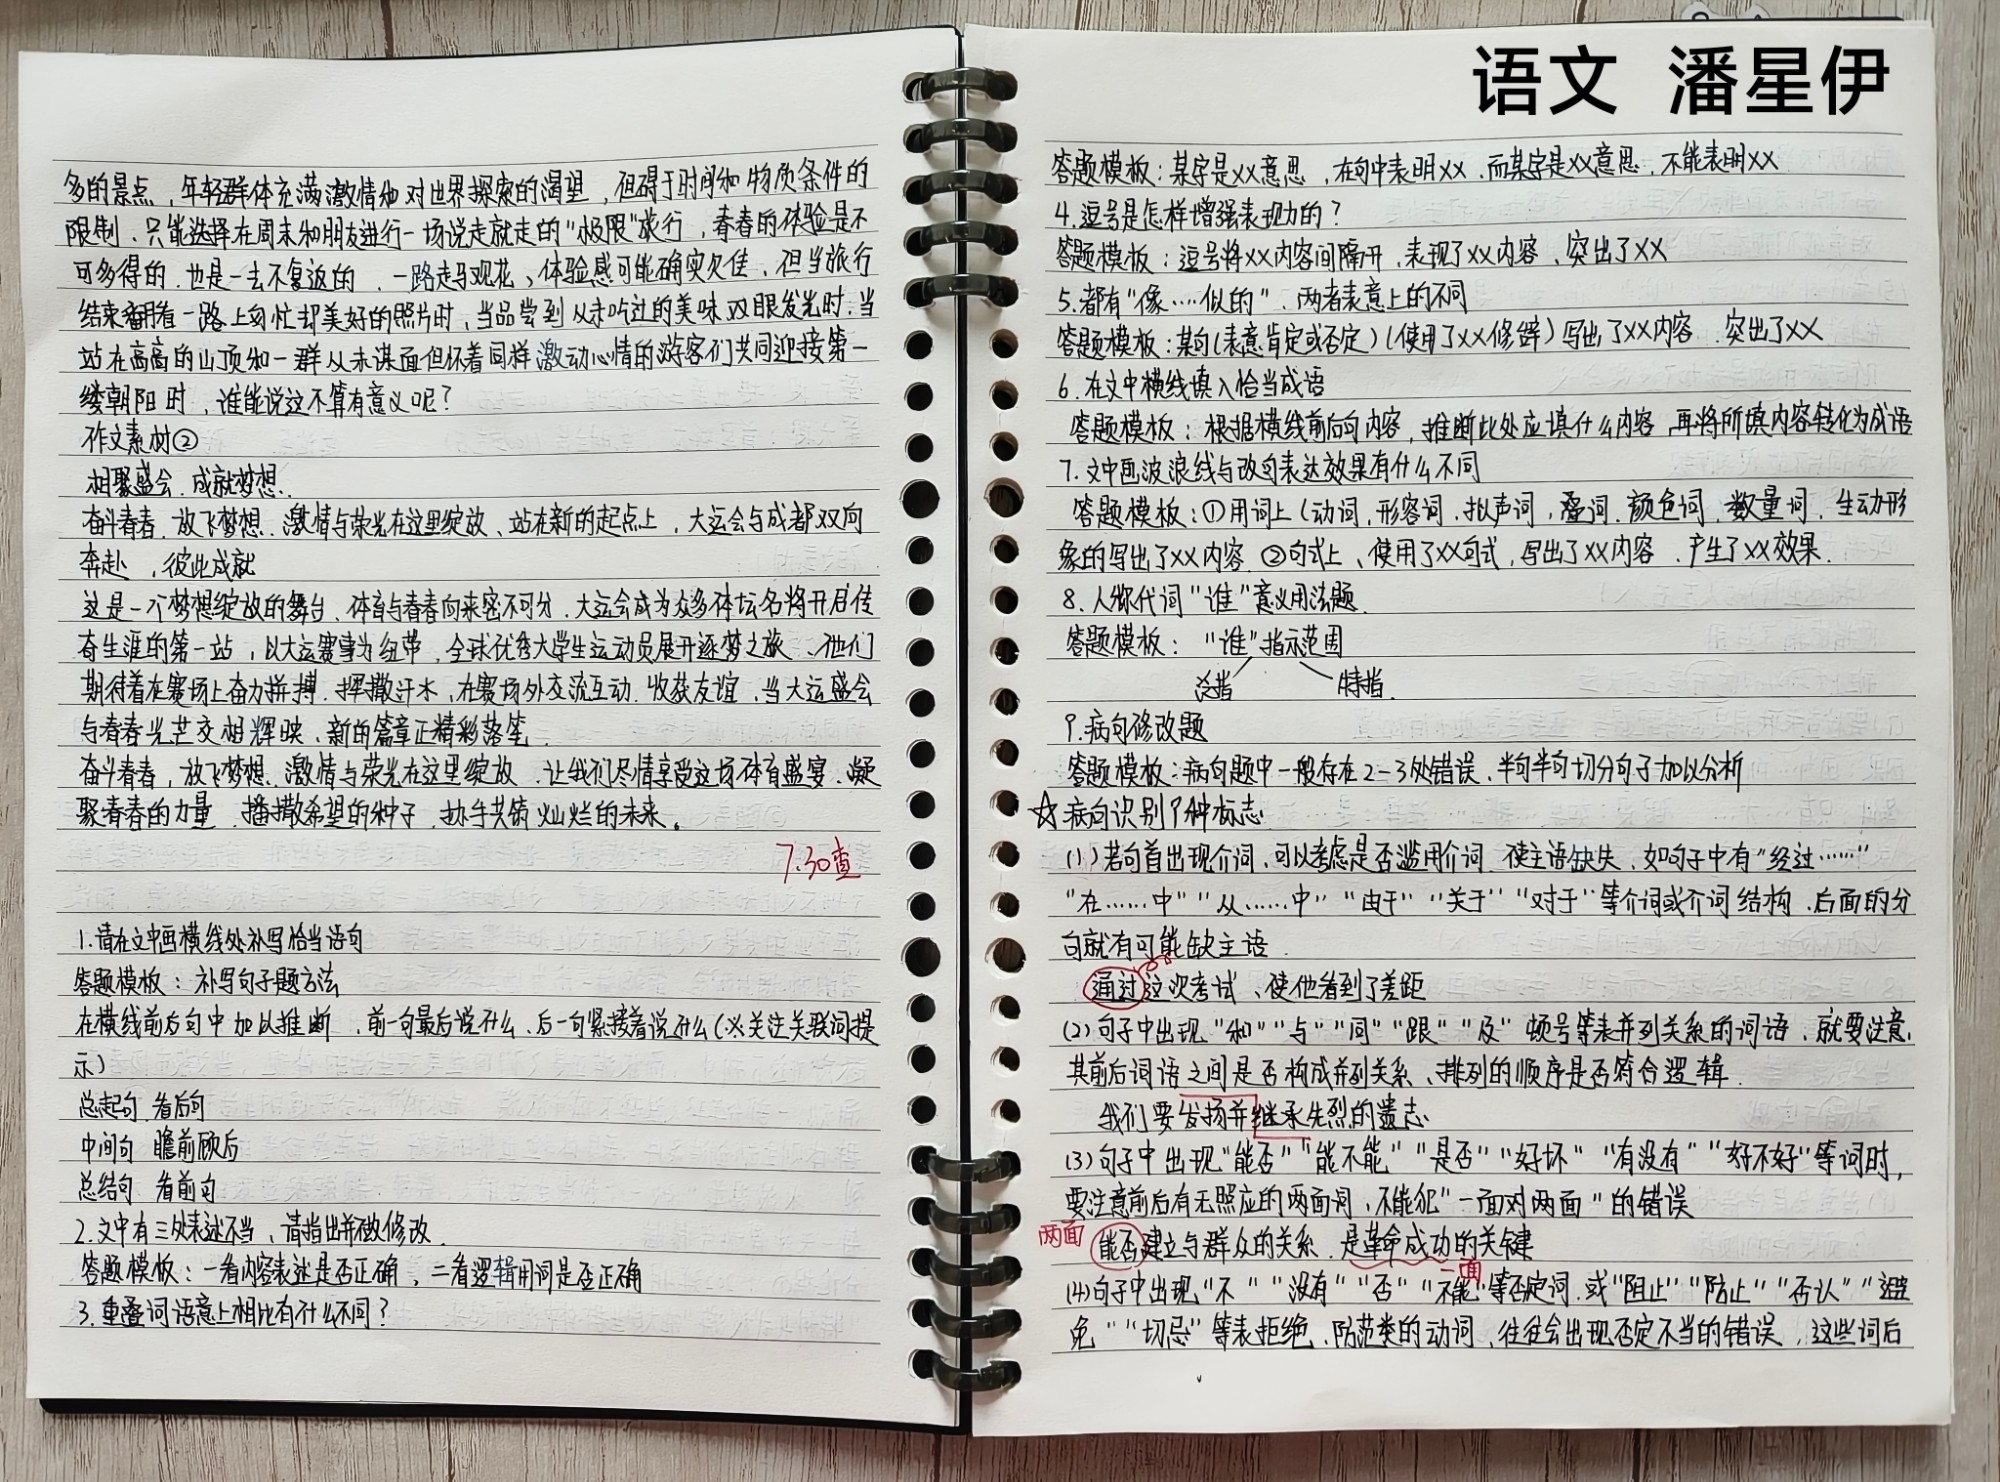 语文 潘星伊
多的景点，年轻群体充满激情和对世界探索的渴望，但碍于时间和物质条件的
限制、只能选择在周末和朋友进行一场说走就走的"极限"旅行，青春的体验是不
可多得的．也是一去不复返的．一路走马观花、体验感可能确实欠佳，但当旅行
结束翻看一路上匆忙却美好的照片时，当品尝到从未吃过的美味双眼发光时．当
站在高高的山顶和一群从未谋面但怀着同样激动心情的游客们共同迎接第一
缕朝阳时，谁能说这不算有意义呢？
作文素材②
相聚盛会．成就梦想．
奋斗青春．放飞梦想．激情与荣光在这里绽放、站在新的起点上，大运会与成都双向
奔赴，彼此成就
这是一个梦想绽放的舞台．体育与青春向来密不可分．大运会成为众多体坛名将开启传
奇生涯的第一站，以大运赛事为纽带，全球优秀大学生运动员展开逐梦之旅、他们
期待着在赛场上奋力拼搏．挥撒汗水，在赛场外交流互动．收获友谊，当大运盛会
与青春光芒交相辉映、新的篇章正精彩落笔．
奋斗青春，放飞梦想．激情与荣光在这里绽放．让我们尽情享受这场体育盛宴．凝
聚青春的力量．播撒希望的种子．协手共铸灿烂的未来。
7.30查
1.请在文中画横线处补写恰当语句
答题模板：补写句子题方法
在横线前后句中加以推断，前一句最后说什么．后一句紧接着说什么(※关注关联词提
示)
总起句 看后句
中间句 瞻前顾后
总结句 看前句
2.文中有三处表述不当，请指出并做修改．
答题模板：一看内容表述是否正确，二看逻辑用词是否正确
3.重叠词语意上相比有什么不同？
答题模板：某字是XX意思，在句中表明XX．而某字是XX意思，不能表明XX
4.逗号是怎样增强表现力的？
答题模板：逗号将XX内容间隔开，表现了XX内容、突出了XX
5.都有"像……似的"．两者表意上的不同
答题模板：某句(表意肯定或否定)(使用了XX修辞)写出了XX内容．突出了XX
6.在文中横线填入恰当成语
答题模板：根据横线前后句内容，推断此处应填什么内容，再将所填内容转化为成语
7.文中画波浪线与改句表达效果有什么不同
答题模板：①用词上(动词，形容词．拟声词，叠词．颜色词，数量词．生动形
象的写出了XX内容．②句式上、使用了XX句式，写出了XX内容．产生了XX效果．
8.人称代词"谁"意义用法题．
答题模板："谁"指示范围
泛指 特指．
9.病句修改题
答题模板：病句题中一般存在2-3处错误、半句半句切分句子加以分析
☆病句识别9种标志
(1)若句首出现介词、可以考虑是否滥用介词．使主语缺失，如句子中有"经过……"
"在……中""从……中""由于""关于""对于"等介词或介词结构．后面的分
句就有可能缺主语．
通过这次考试、使他看到了差距
(2)句子中出现"和""与""同""跟""及"顿号等表并列关系的词语．就要注意
其前后词语之间是否构成并列关系、排列的顺序是否符合逻辑．
我们要发扬并继承先烈的遗志．
(3)句子中出现"能否""能不能""是否""好坏""有没有""好不好"等词时，
要注意前后有无照应的两面词．不能犯"一面对两面"的错误
两面 能否建立与群众的关系．是革命成功的关键
一面
(4)句子中出现"不""没有""否""不能"等否定词．或"阻止""防止""否认""避
免""切忌"等表拒绝．防范类的动词，往往会出现否定不当的错误，这些词后